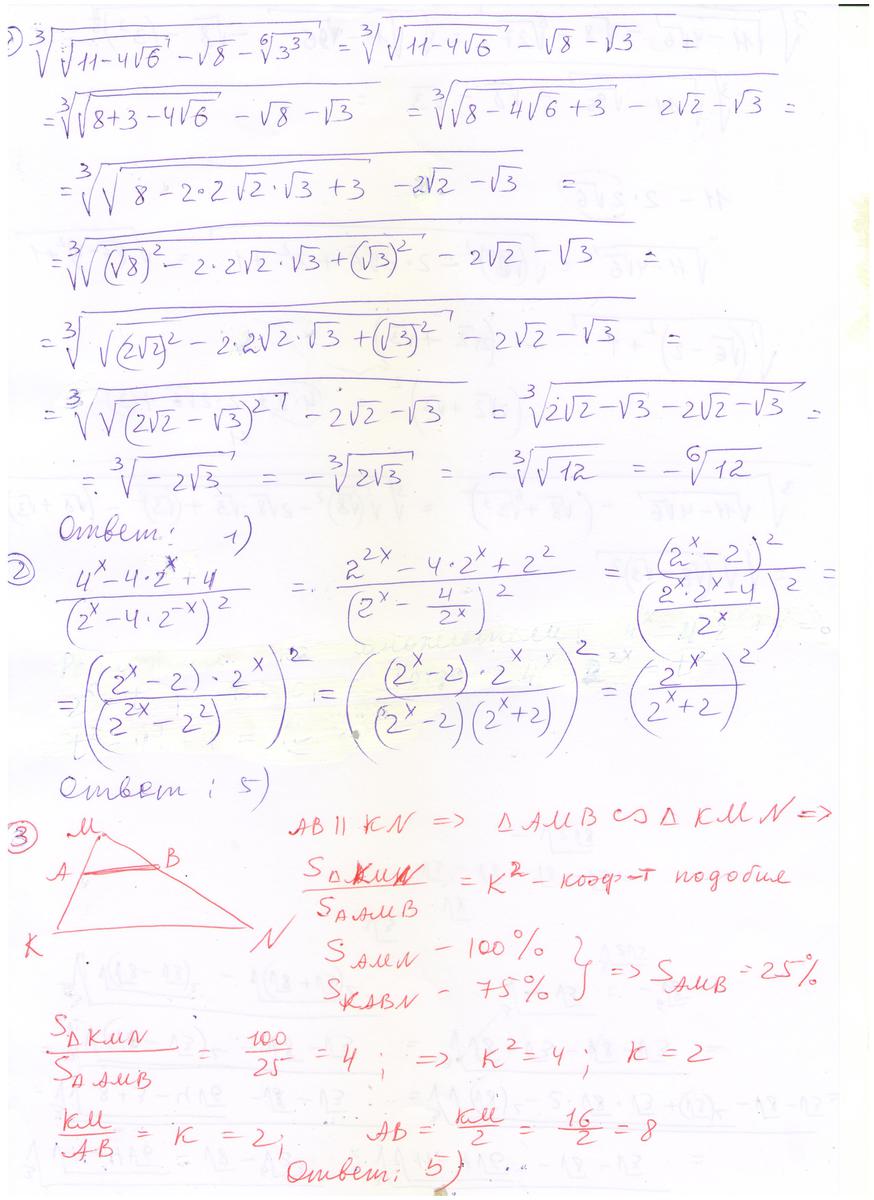 1) ∛(√(11-4√6) - √8 - ⁶√3³) = ∛(√(11-4√6) - √8 - √3) =
= ∛(√(8+3-4√6) - √8 - √3) = ∛(√(8-4√6+3) - 2√2 - √3) =
= ∛(√(8-2·2√2·√3+3) - 2√2 - √3) =
= ∛(√((√8)² - 2·2√2·√3 + (√3)²) - 2√2 - √3) =
= ∛(√((2√2)² - 2·2√2·√3 + (√3)²) - 2√2 - √3) =
= ∛(√((2√2-√3)²) - 2√2 - √3) = ∛(2√2-√3-2√2-√3) =
= ∛(-2√3) = -∛(2√3) = -∛√12 = -⁶√12
Ответ: 1)
② (4^x - 4·2^x + 4)/(2^x - 4·2^-x)² = (2^2x - 4·2^x + 2²)/(2^x - 4/2^x)² = (2^x - 2)²/((2^x·2^x - 4)/2^x)² =
= ((2^x - 2)·2^x/(2^2x - 2²))² = ((2^x - 2)·2^x/(2^x - 2)(2^x + 2))² = (2^x/(2^x + 2))²
Ответ: 5)
③ M A B K N
AB || KN => Δ AMB ∽ Δ KMN =>
SΔKMN/SΔAMB = K² - коэф-т подобия
S AMN - 100%
S KABN - 75% } => S AMB = 25%
SΔKMN/SΔAMB = 100/25 = 4; => K² = 4; K = 2
KM/AB = K = 2, AB = KM/2 = 16/2 = 8
Ответ: 5)